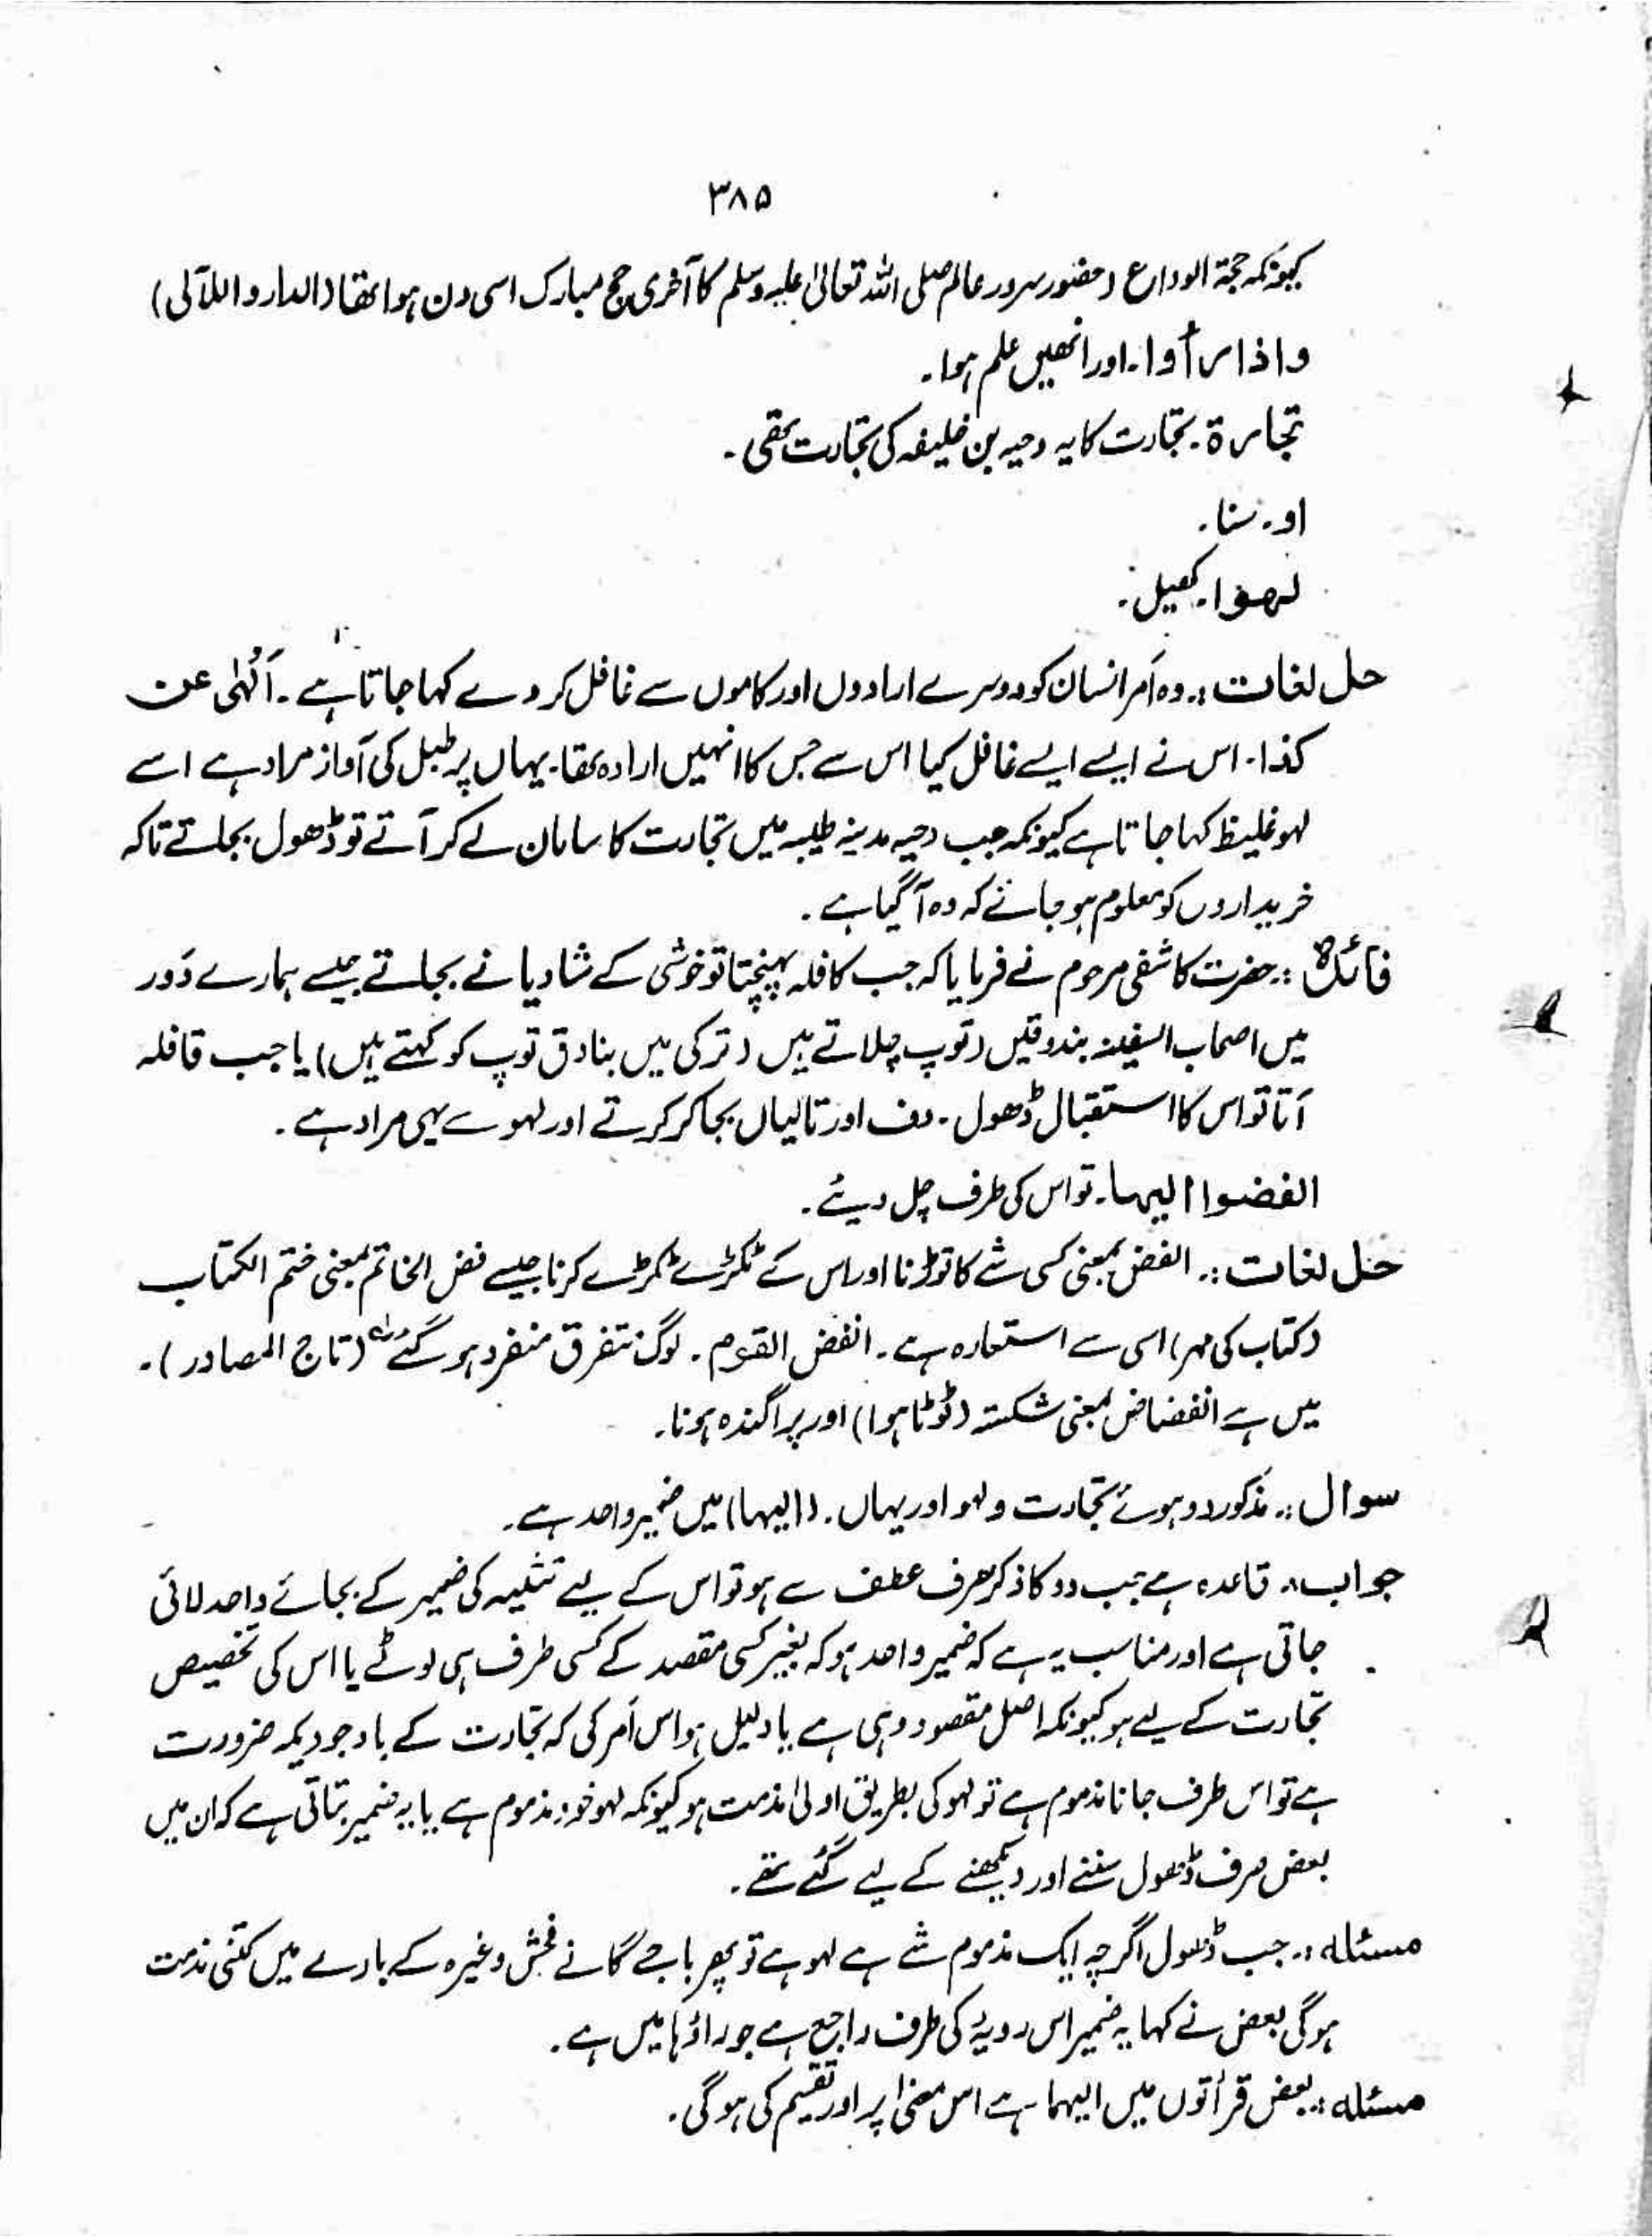 ۳۸۵
کیونکہ حجۃ الوداع (حضور سرور عالم صلی اللہ تعالیٰ علیہ وسلم کا آخری حج مبارک اسی دن ہوا تھا (الدار واللآلی)
واذا رأوا۔ اور انھیں علم ہوا۔
تجارۃ۔ تجارت کا یہ دحیہ بن خلیفہ کی تجارت تھی۔
او۔ سنا۔
لھوا۔ کھیل۔
حل لغات :۔ وہ اَمر انسان کو دوسرے ارادوں اور کاموں سے غافل کر دے کہا جاتا ہے۔ اَلْہٰی عن
کذا۔ اس نے ایسے ایسے غافل کیا اس سے جس کا انہیں ارادہ تھا۔ یہاں پر طبل کی آواز مراد ہے اسے
لہو غلیظ کہا جاتا ہے کیونکہ جب دحیہ مدینہ طیبہ میں تجارت کا سامان لے کر آتے تو ڈھول بجاتے تاکہ
خریداروں کو معلوم ہو جائے کہ وہ آ گیا ہے۔
فائدہ :۔ حضرت کاشفی مرحوم نے فرمایا کہ جب کافلہ پہنچتا تو خوشی کے شادیانے بجاتے جیسے ہمارے دَور
میں اصحاب السفینہ بندوقیں (توپ چلاتے ہیں (ترکی میں بنادق توپ کو کہتے ہیں) یا جب قافلہ
آتا تو اس کا استقبال ڈھول۔ دف اور تالیاں بجا کر کرتے اور لہو سے یہی مراد ہے۔
انفضوا الیہا۔ تو اس کی طرف چل دیئے۔
حل لغات :۔ الفض بمعنی کسی شے کا توڑنا اور اس کے ٹکڑے ٹکڑے کرنا جیسے فض الخاتم بمعنی ختم الکتاب
(کتاب کی مہر) اسی سے استعارہ ہے۔ انفض القوم۔ لوگ متفرق منفرد ہو گئے (تاج المصادر)۔
میں ہے انفضاض بمعنی شکستہ (ٹوٹا ہوا) اور پراگندہ ہونا۔
سوال :۔ مذکور دو ہوئے تجارت و لہو اور یہاں۔ (الیہا) میں ضمیر واحد ہے۔
جواب :۔ قاعدہ ہے جب دو کا ذکر حرف عطف سے ہو تو اس کے لیے تثنیہ کی ضمیر کے بجائے واحد لائی
جاتی ہے اور مناسب یہ ہے کہ ضمیر واحد ہو کہ بغیر کسی مقصد کے کسی طرف ہی لوٹے یا اس کی تخصیص
تجارت کے لیے ہو کیونکہ اصل مقصود وہی ہے یا دلیل ہو اس اَمر کی کہ تجارت کے باوجودیکہ ضرورت
ہے تو اس طرف جانا مذموم ہے تو لہو کی بطریق اولیٰ مذمت ہو کیونکہ لہو خود مذموم ہے یا یہ ضمیر بتاتی ہے کہ ان میں
بعض صرف ڈھول سننے اور دیکھنے کے لیے گئے تھے۔
مسئلہ :۔ جب ڈھول اگرچہ ایک مذموم شے ہے لہو ہے تو پھر باجے گانے فحش وغیرہ کے بارے میں کتنی مذمت
ہو گی بعض نے کہا یہ ضمیر اس رویۂ کی طرف راجع ہے جو راؤہا میں ہے۔
مسئلہ :۔ بعض قرأتوں میں الیہما ہے اس معنٰی پر اور تقسیم کی ہو گی۔